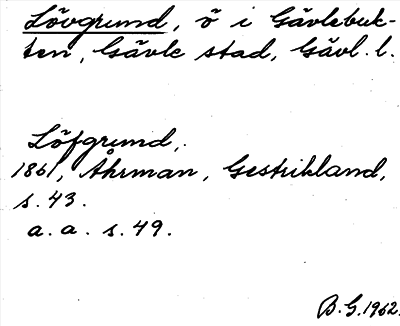 Lövgrund, ö i Gävlebuk-
ten, Gävle stad, Gävl. l.
Löfgrund,.
1861, Åhrman, Gestrikland,
s. 43.
a. a. s. 49.
B. G. 1962.